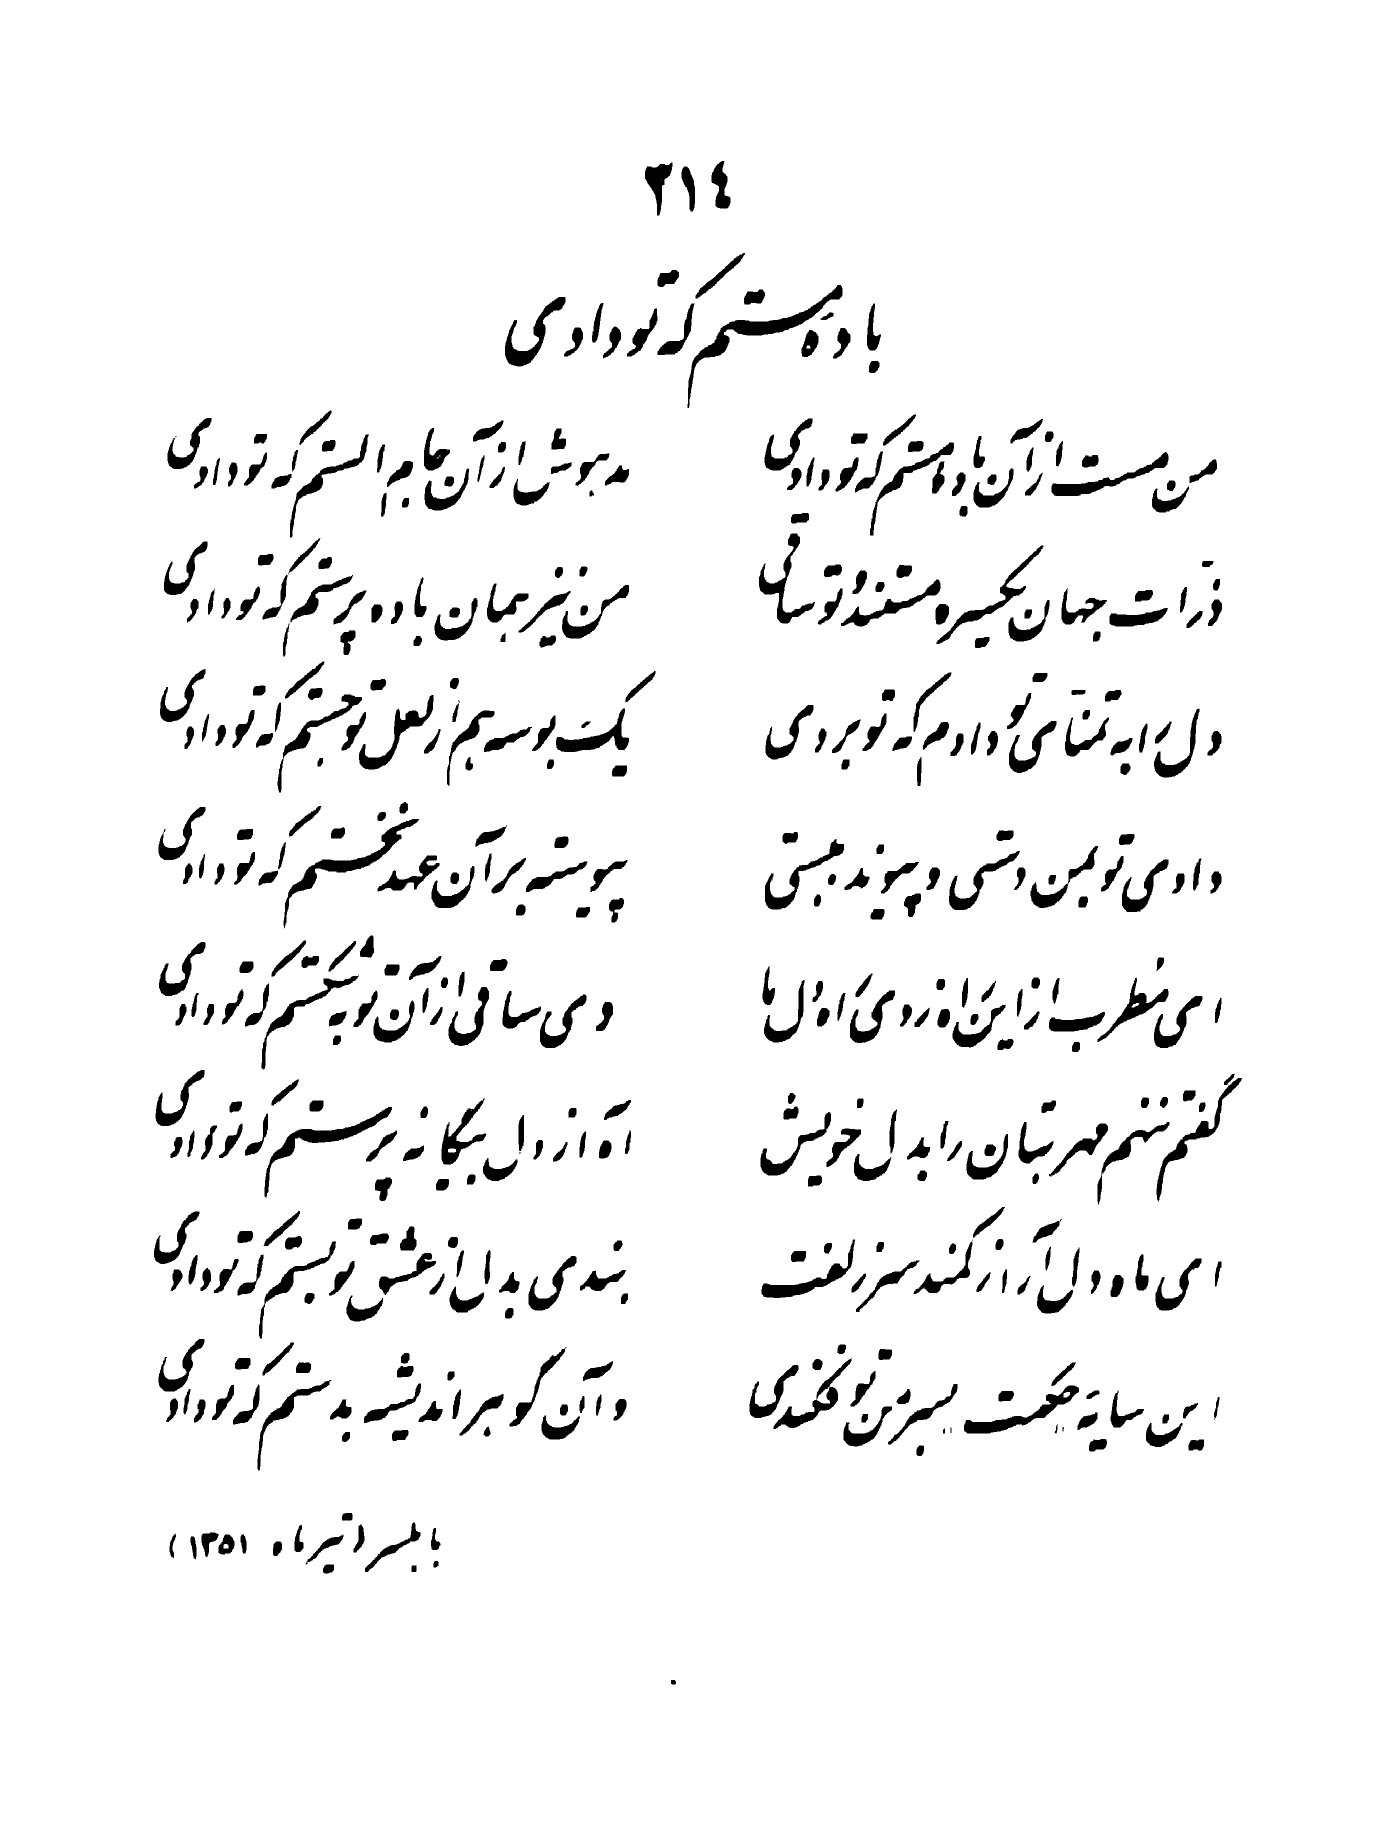 ۳۱۴
بادهٔ مستم که تو دادی
من مست از آن بادهٔ مستم که تو دادی مدهوش از آن جام الستم که تو دادی
ذرّات جهان یکسره مستند و تو ساقی من نیز همان باده پرستم که تو دادی
دل را به تمنّای تو دادم که تو بردی یک بوسه هم از لعل تو جستم که تو دادی
دادی تو بمن دستی و پیوند ببستی پیوسته بر آن عهد نخستم که تو دادی
ای مطرب از این راه زدی راه دل ما دی ساقی از آن توبه شکستم که تو دادی
گفتم ننهم مهر بتان را بدل خویش آه از دل بیگانه پرستم که تو دادی
ای ماه دل آرا ز کمند سر زلفت بندی بدل از عشق تو بستم که تو دادی
این سایهٔ حکمت بسر من تو فکندی و آن گوهر اندیشه بدستم که تو دادی
بابلسر (تیر ماه ۱۳۵۱)